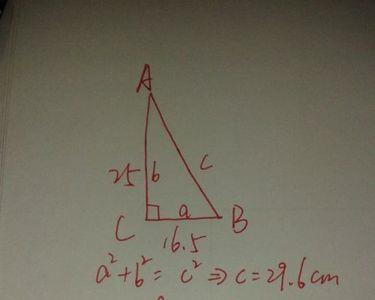 A
25 b c
C a B
16.5
a²+b²= c² ⇒ c=29.6cm